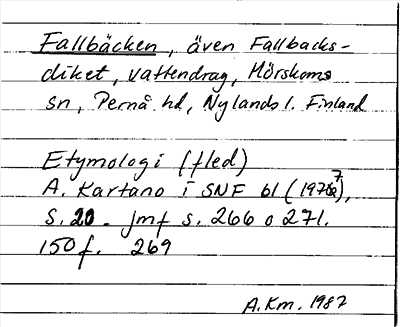 Fallbäcken, även Fallbacks-
diket, vattendrag, Mörskoms
sn, Pernå hd, Nylands l. Finland
Etymologi (fled)
A. Kartano i SNF 61 (1976),
S. 20 - jmf s. 266 o 271.
150 f. 269
A.Km. 1987